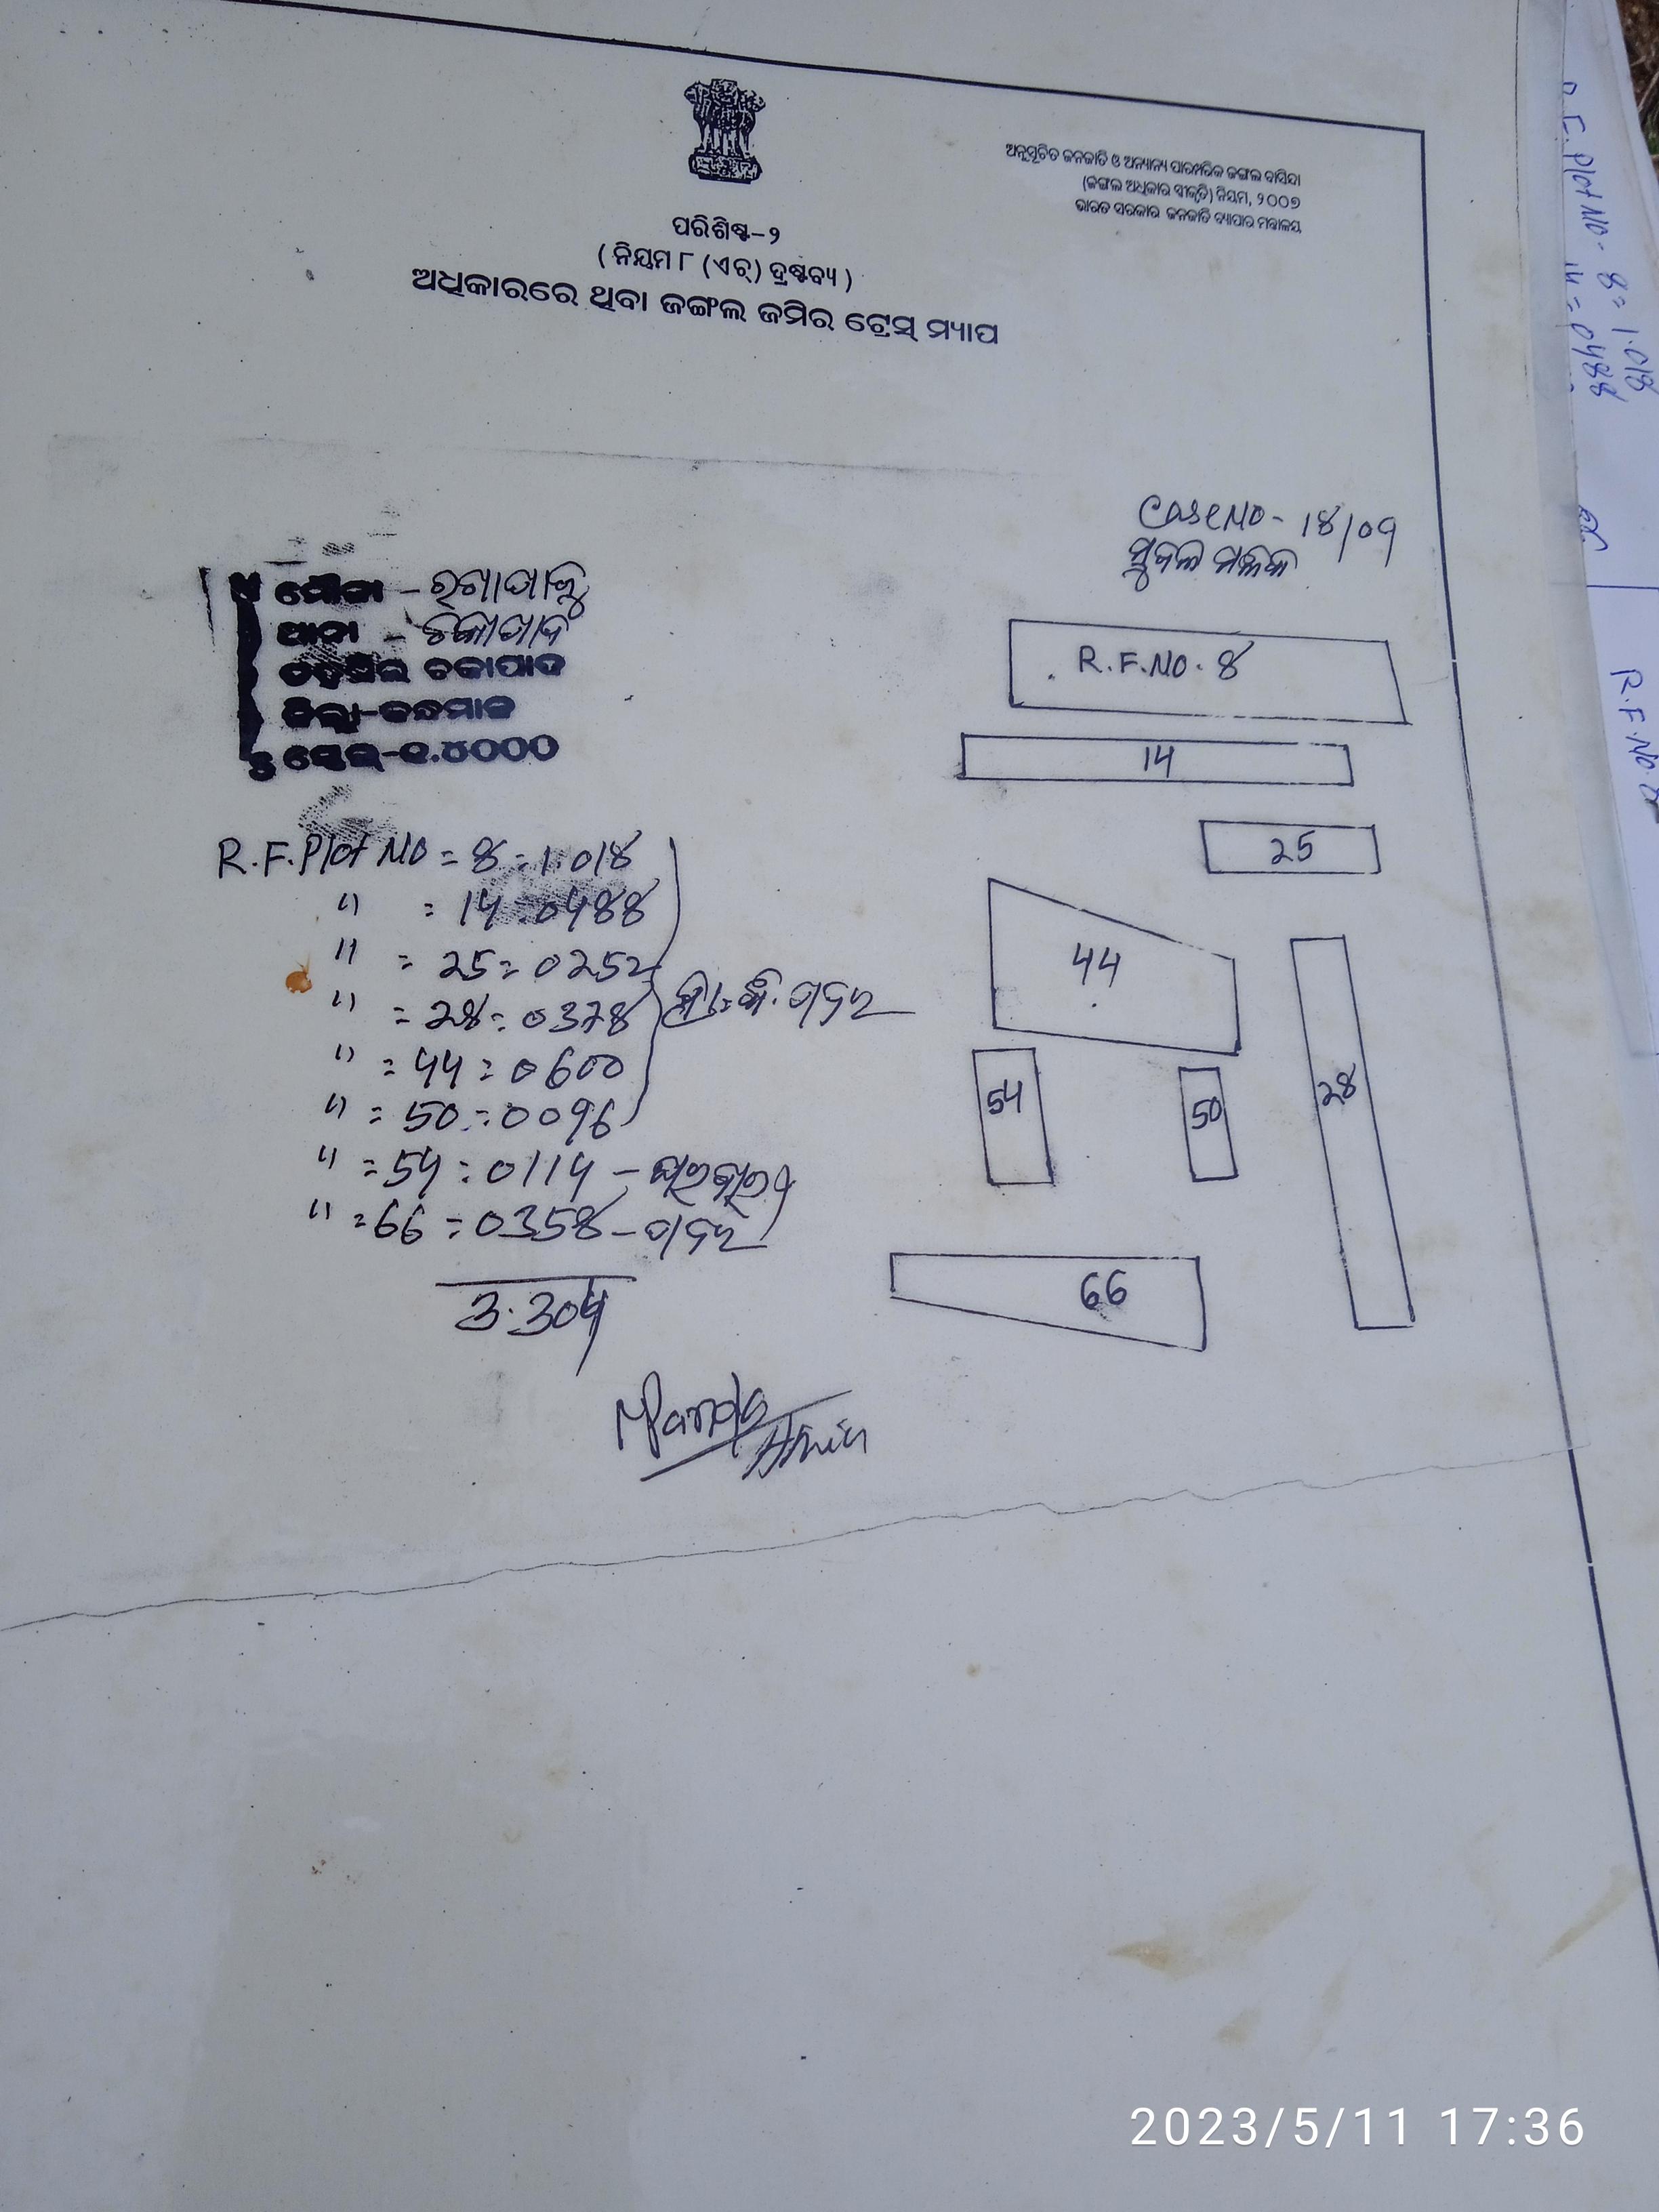 ଅନୁସୂଚିତ ଜନଜାତି ଓ ଅନ୍ୟାନ୍ୟ ପାରମ୍ପରିକ ଜଙ୍ଗଲ ବାସିନ୍ଦା
(ଜଙ୍ଗଲ ଅଧିକାର ସ୍ୱୀକୃତି) ନିୟମ, ୨୦୦୭
ଭାରତ ସରକାର ଜନଜାତି ବ୍ୟାପାର ମନ୍ତ୍ରାଳୟ
ପରିଶିଷ୍ଟ-୨
( ନିୟମ ୮ (ଏଚ୍) ଦ୍ରଷ୍ଟବ୍ୟ )
ଅଧିକାରରେ ଥିବା ଜଙ୍ଗଲ ଜମିର ଟ୍ରେସ୍ ମ୍ୟାପ
Case NO- 18/09
ମଲ୍ଲିକ
ମୌଜା -
ଥାନା - ଚକାପାଦ
ତହସିଲ ଚକାପାଦ
ଜିଲ୍ଲା-କନ୍ଧମାଳ
ସ୍କେଲ-୧.୪୦୦୦
R.F.NO. 8
14
25
44
28
54
50
66
R.F. Plot NO = 8 = 1.018
" = 14 = 0488
" = 25 = 0252
" = 28 = 0328
" = 44 = 0600
" = 50 = 0096
" = 54 = 0114 - ଘରବାରୀ
" = 66 = 0358 -
3.304
Amin
R.F. Plot NO - 8 = 1.018
14 = 0488
R.F.NO. 8
2023/5/11 17:36